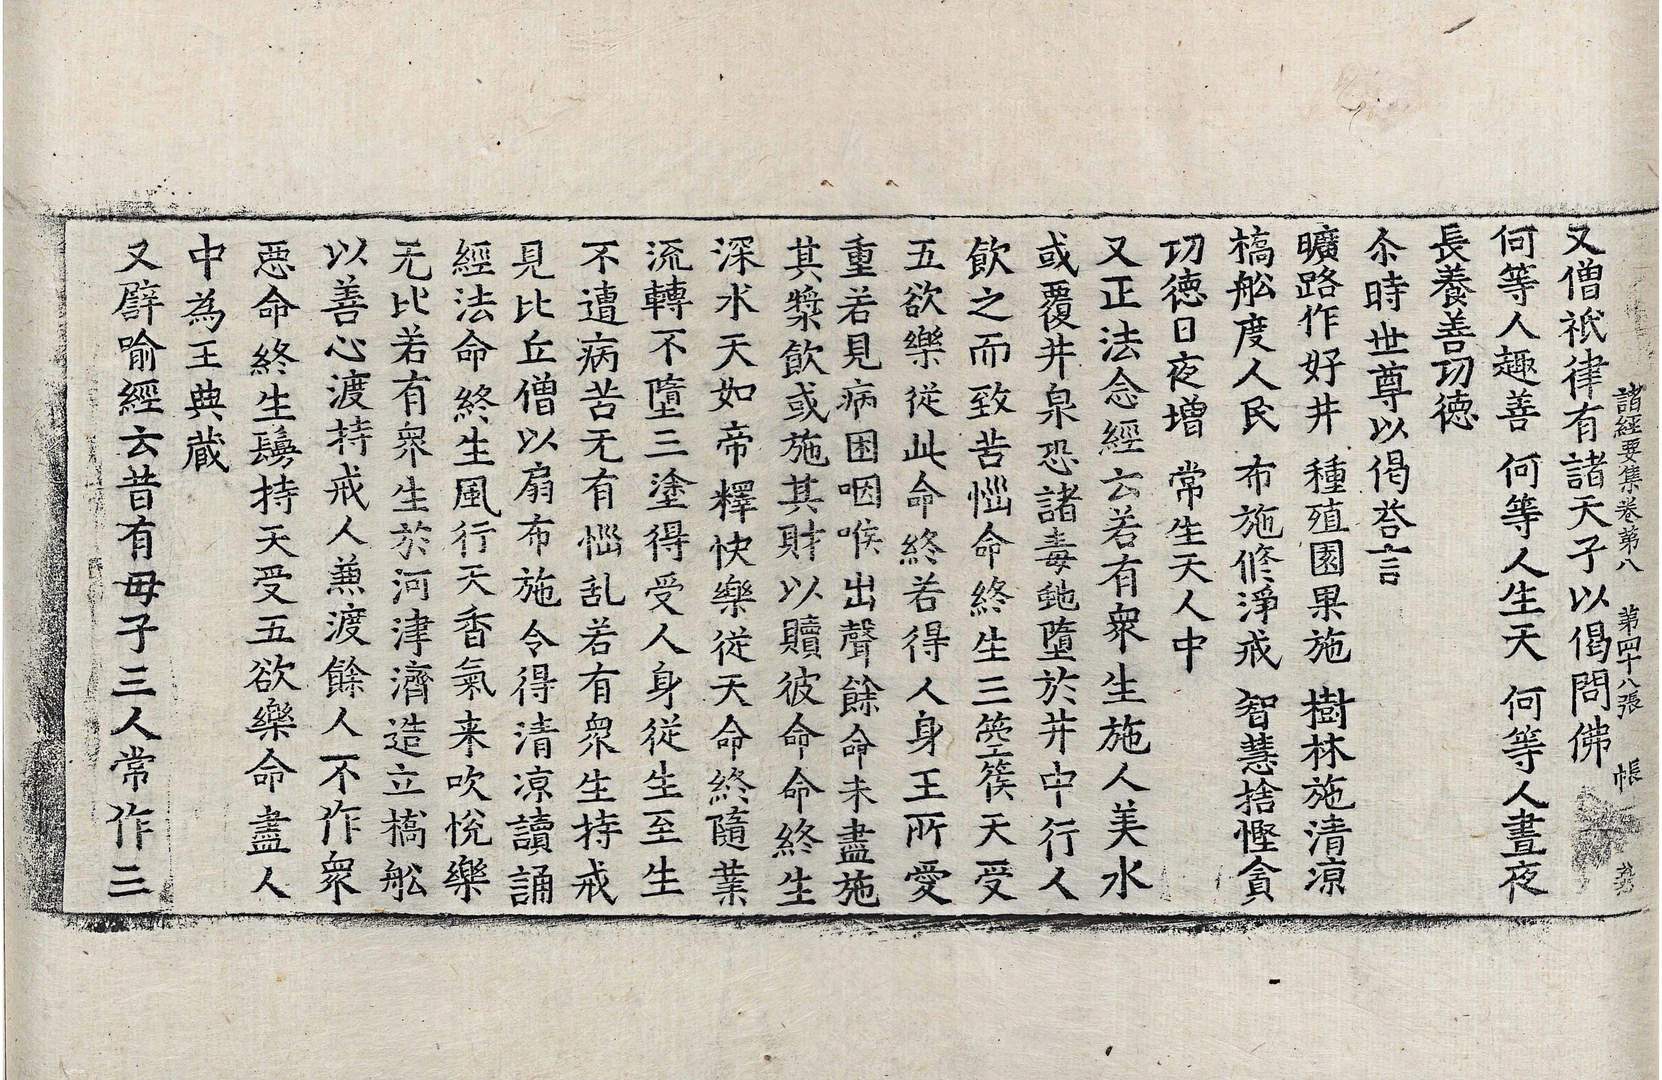 諸經要集卷第八 第四十八張 帳
又僧祇律有諸天子以偈問佛
何等人趣善 何等人生天 何等人晝夜
長養善㓛徳
尒時世尊以偈荅言
曠路作好井 種殖園果施 樹林施清凉
橋舩度人民 布施修淨戒 智慧捨慳貪
㓛徳日夜增 常生天人中
又正法念經云若有衆生施人美水
或覆井泉恐諸毒虵墮於井中行人
飲之而致苦惱命終生三箜篌天受
五欲樂從此命終若得人身王所愛
重若見病困咽喉出聲餘命未盡施
其漿飲或施其財以贖彼命命終生
深水天如帝釋快樂從天命終隨業
流轉不墮三塗得受人身從生至生
不遭病苦无有惱乱若有衆生持戒
見比丘僧以扇布施令得清凉讀誦
經法命終生風行天香氣来吹悅樂
无比若有衆生於河津濟造立橋舩
以善心渡持戒人兼渡餘人不作衆
惡命終生鬘持天受五欲樂命盡人
中為王典藏
又譬喻經云昔有母子三人常作三